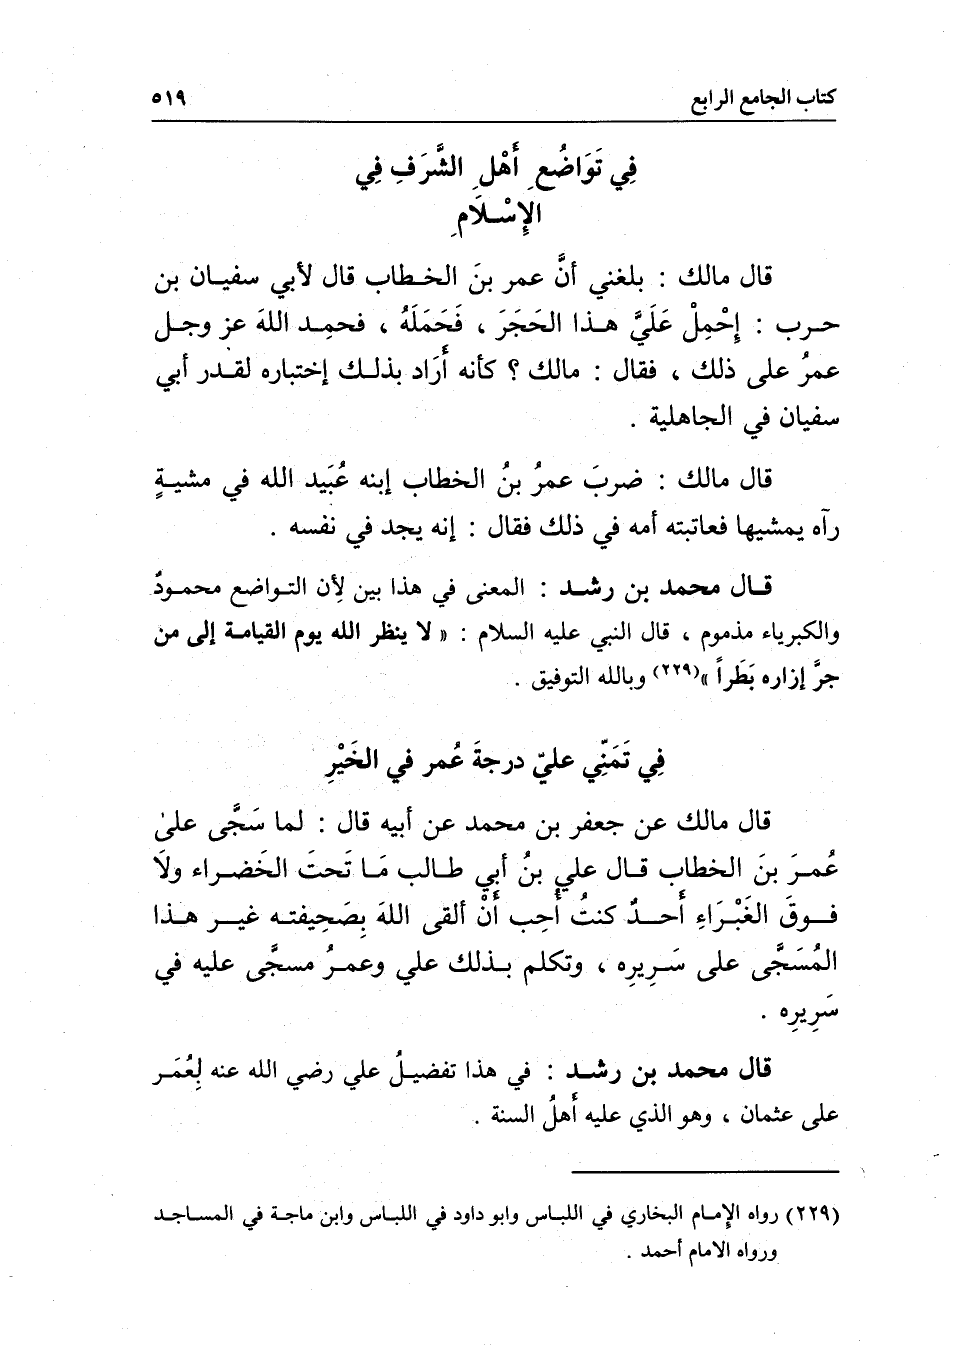 كتاب الجامع الرابع ٥١٩
فِي تَوَاضُعِ أَهْلِ الشَّرَفِ فِي
الإِسْلَامِ
قال مالك : بلغني أنَّ عمر بنَ الخطاب قال لأبي سفيان بن
حرب : إِحْمِلْ عَلَيَّ هذا الحَجَرَ ، فَحَمَلَهُ ، فحمِد اللهَ عز وجل
عمرُ على ذلك ، فقال : مالك ؟ كأنه أَرَاد بذلك إختباره لقدر أبي
سفيان في الجاهلية .
قال مالك : ضربَ عمرُ بنُ الخطاب إبنه عُبَيد الله في مشيةٍ
رآه يمشيها فعاتبته أمه في ذلك فقال : إنه يجد في نفسه .
قال محمد بن رشد : المعنى في هذا بين لِأن التواضع محمودٌ
والكبرياء مذموم ، قال النبي عليه السلام : « لا ينظر الله يوم القيامة إلى من
جرَّ إزاره بَطَراً »(٢٢٩) وبالله التوفيق .
فِي تَمَنِّي عليّ درجةَ عُمر في الخَيْرِ
قال مالك عن جعفر بن محمد عن أبيه قال : لما سَجَّى على
عُمرَ بنَ الخطاب قال علي بنُ أبي طالب مَا تَحتَ الخَضراء ولَا
فوقَ الغَبْرَاءِ أَحدٌ كنتُ أُحِب أَنْ ألقى اللهَ بِصَحِيفته غير هذا
المُسَجَّى على سَرِيرِه ، وتكلم بذلك علي وعمرُ مسجَّى عليه في
سَرِيرِه .
قال محمد بن رشد : في هذا تفضيلُ علي رضي الله عنه لِعُمَر
على عثمان ، وهو الذي عليه أَهلُ السنة .
(٢٢٩) رواه الإمام البخاري في اللباس وابو داود في اللباس وابن ماجة في المساجد
ورواه الامام أحمد .